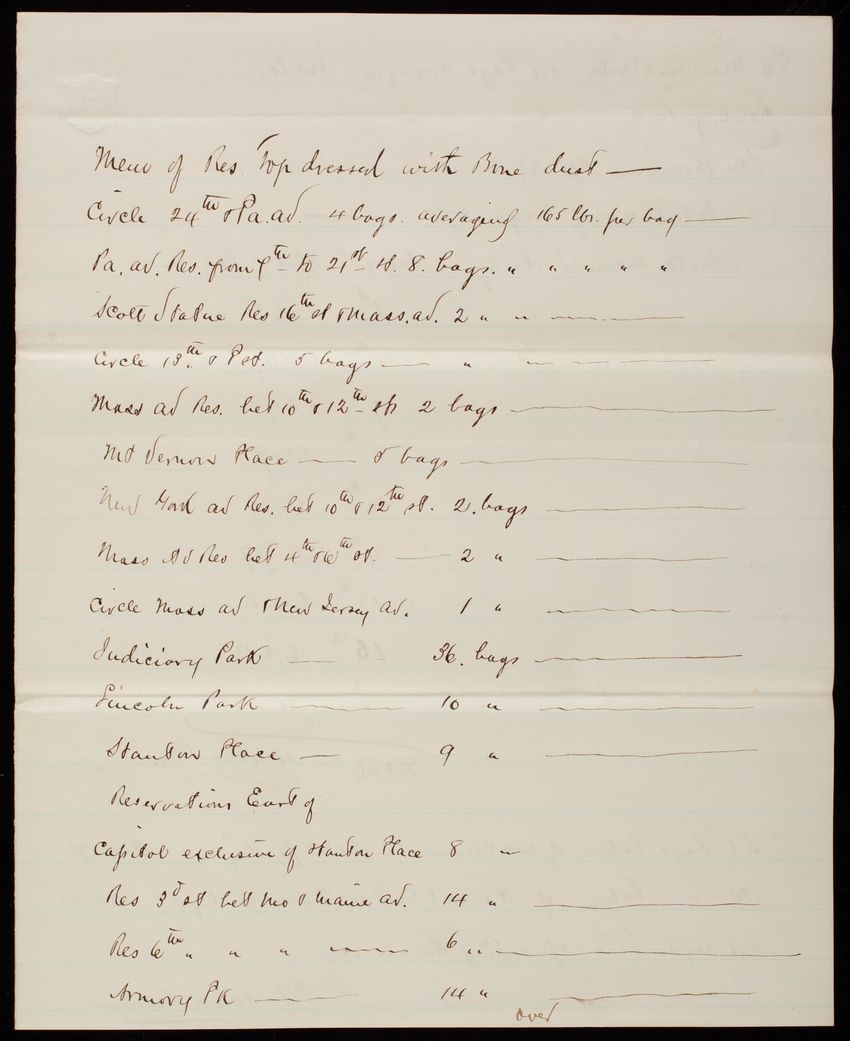 Mem of Res Top dressed with Bone dust —
Circle 24th & Pa. av. 4 bags. averaging 165 lbs. per bag —
Pa. av. Res. from to 21st st. 8. bags. " " " " "
Scott Statue Res 16th st & Mass. av. 2 " "
Circle 13th & P st. 5 bags — "
Mass av Res. bet 10th & 12th sts 2 bags —
Mt Vernon Place — 5 bags —
New York av Res. bet 10th & 12th st. 2. bags —
Mass Av Res bet 4th & 6th st. — 2 " —
Circle Mass av & New Jersey av. 1 " —
Judiciary Park — 36. bags —
Lincoln Park — 10 " —
Stanton Place — 9 " —
Reservations East of
Capitol exclusive of Stanton Place 8 "
Res 3d st bet Mo & Maine av. 14 " —
Res 6th " " " — 6 " —
Armory Pk — 14 " —
over